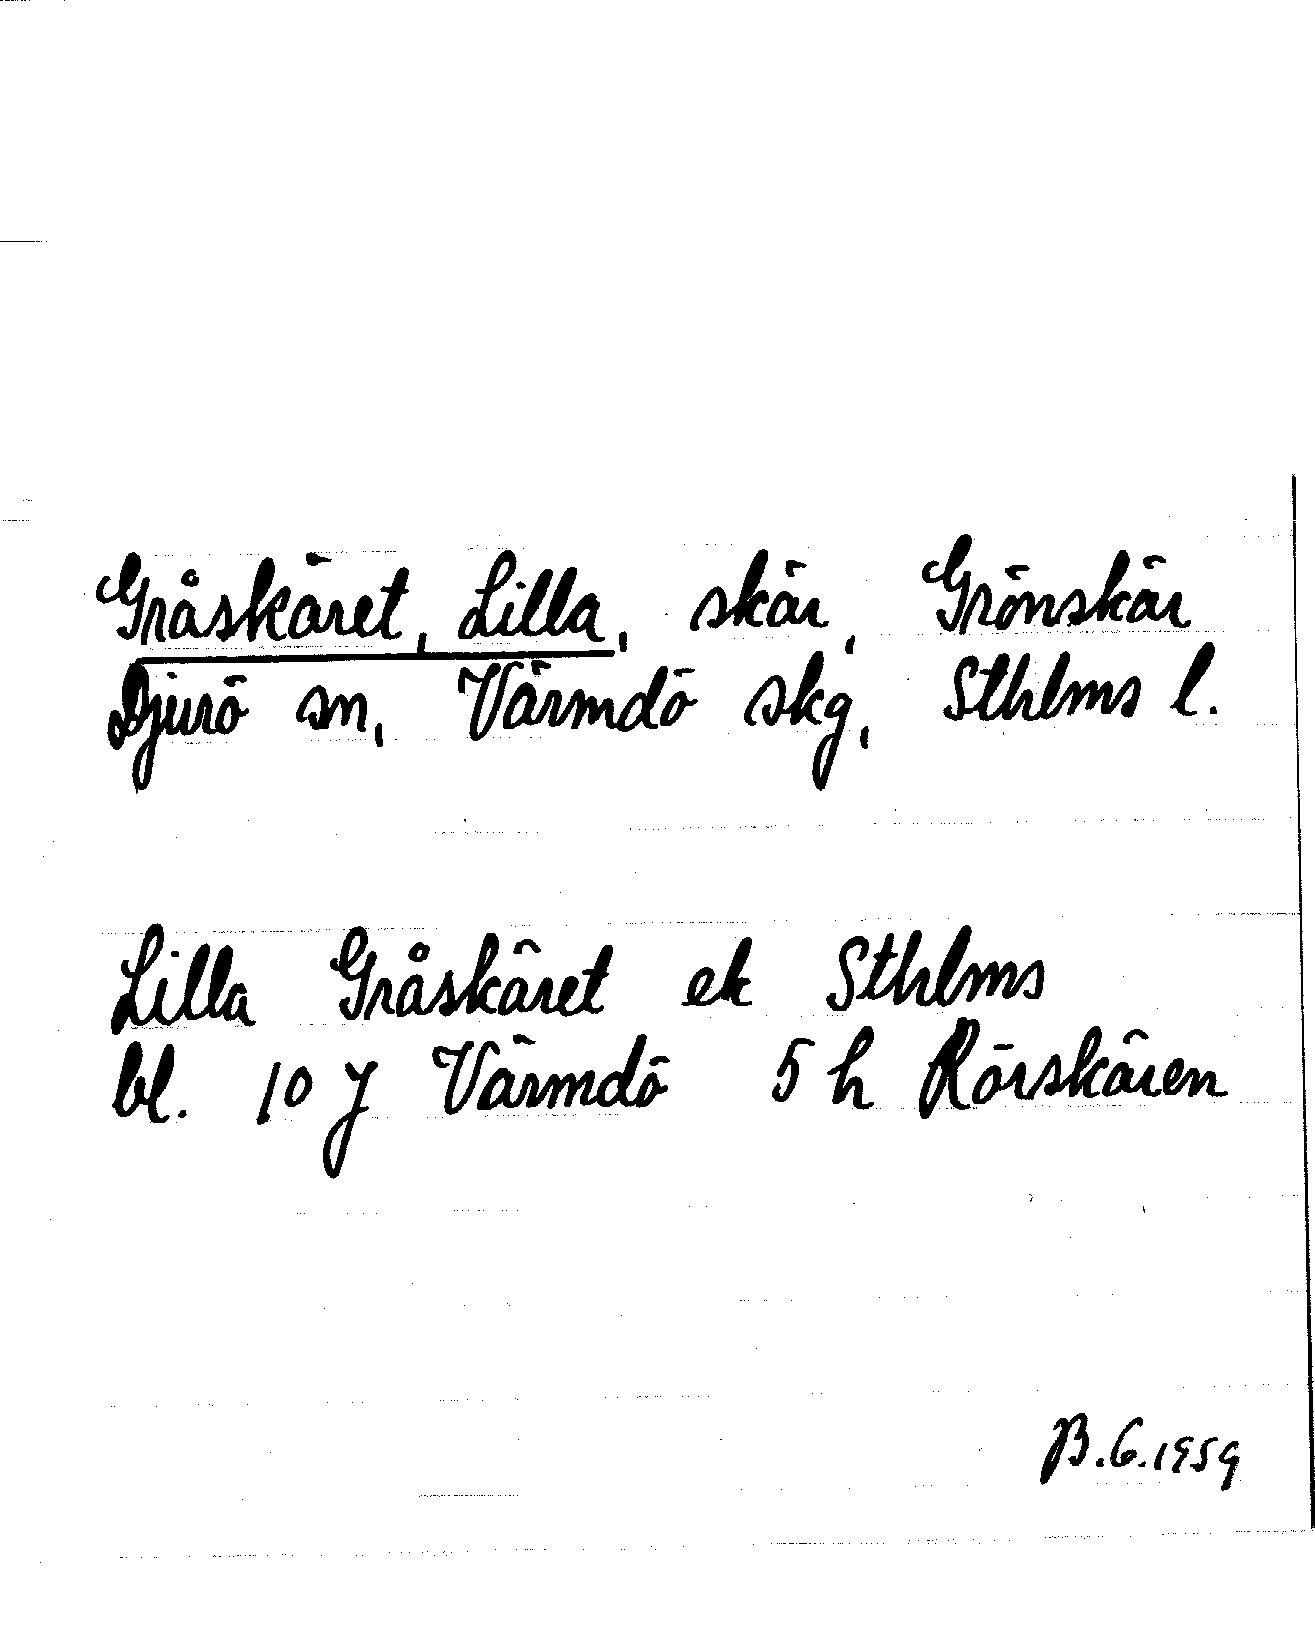 Gråskäret, Lilla, skär, Grönskär
Djurö sn, Värmdö skg, Sthlms l.
Lilla Gråskäret ek Sthlms
bl. 10 J Värmdö 5 h Rörskären
B.G.1959